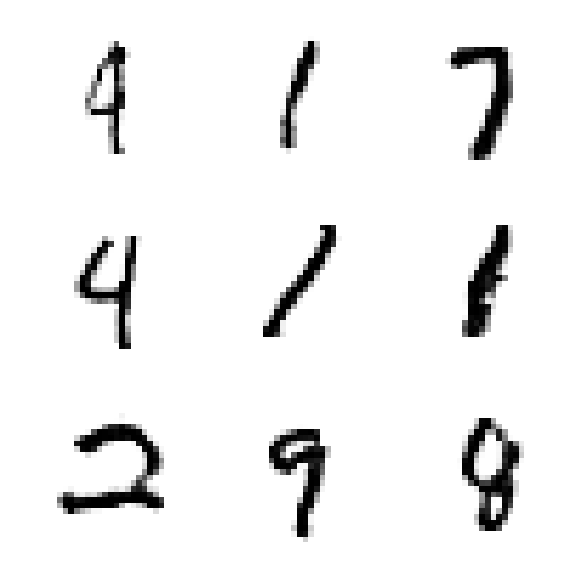 4 1 7
4 1 1
2 9 8